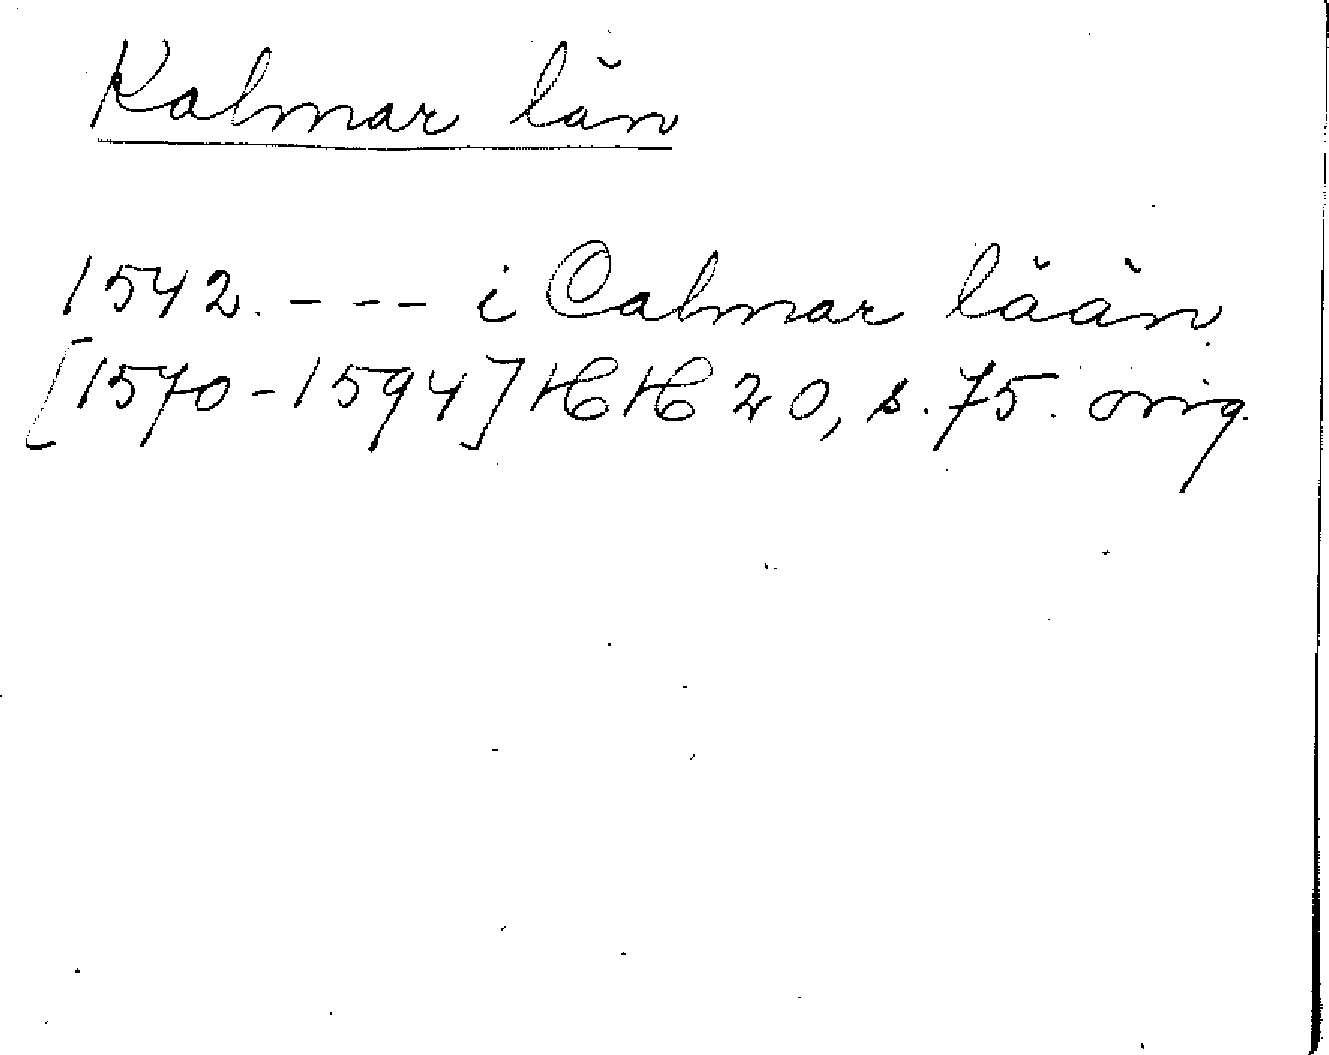 Kalmar län
1542. - - - i Calmar lään
[1570-1594] HH 20, s. 75. orig.